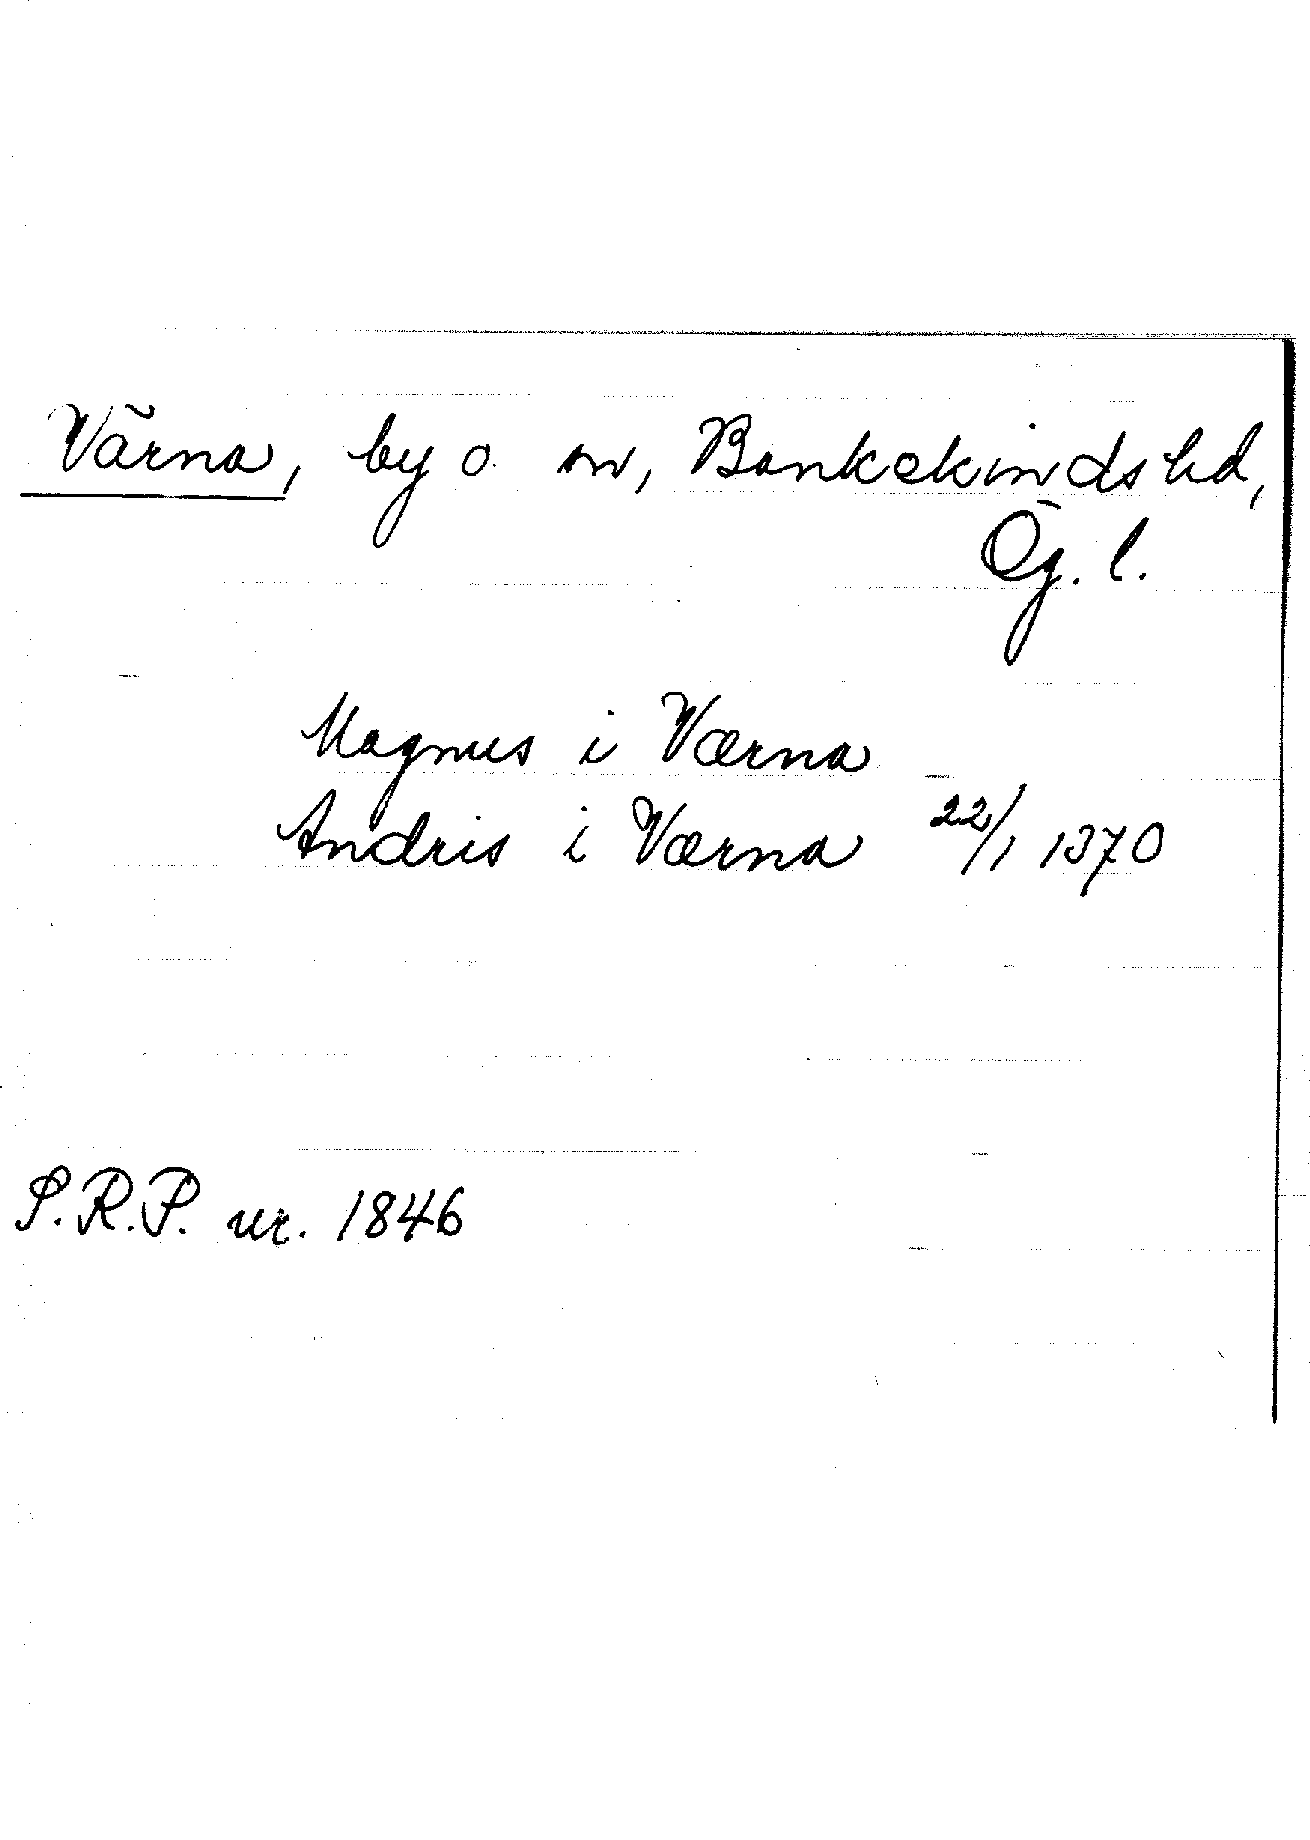 Värna, by o. sn, Bankekinds hd,
Ög. l.
Magnus i Værna
Andris i Værna 22/1 1370
S.R.P. nr. 1846